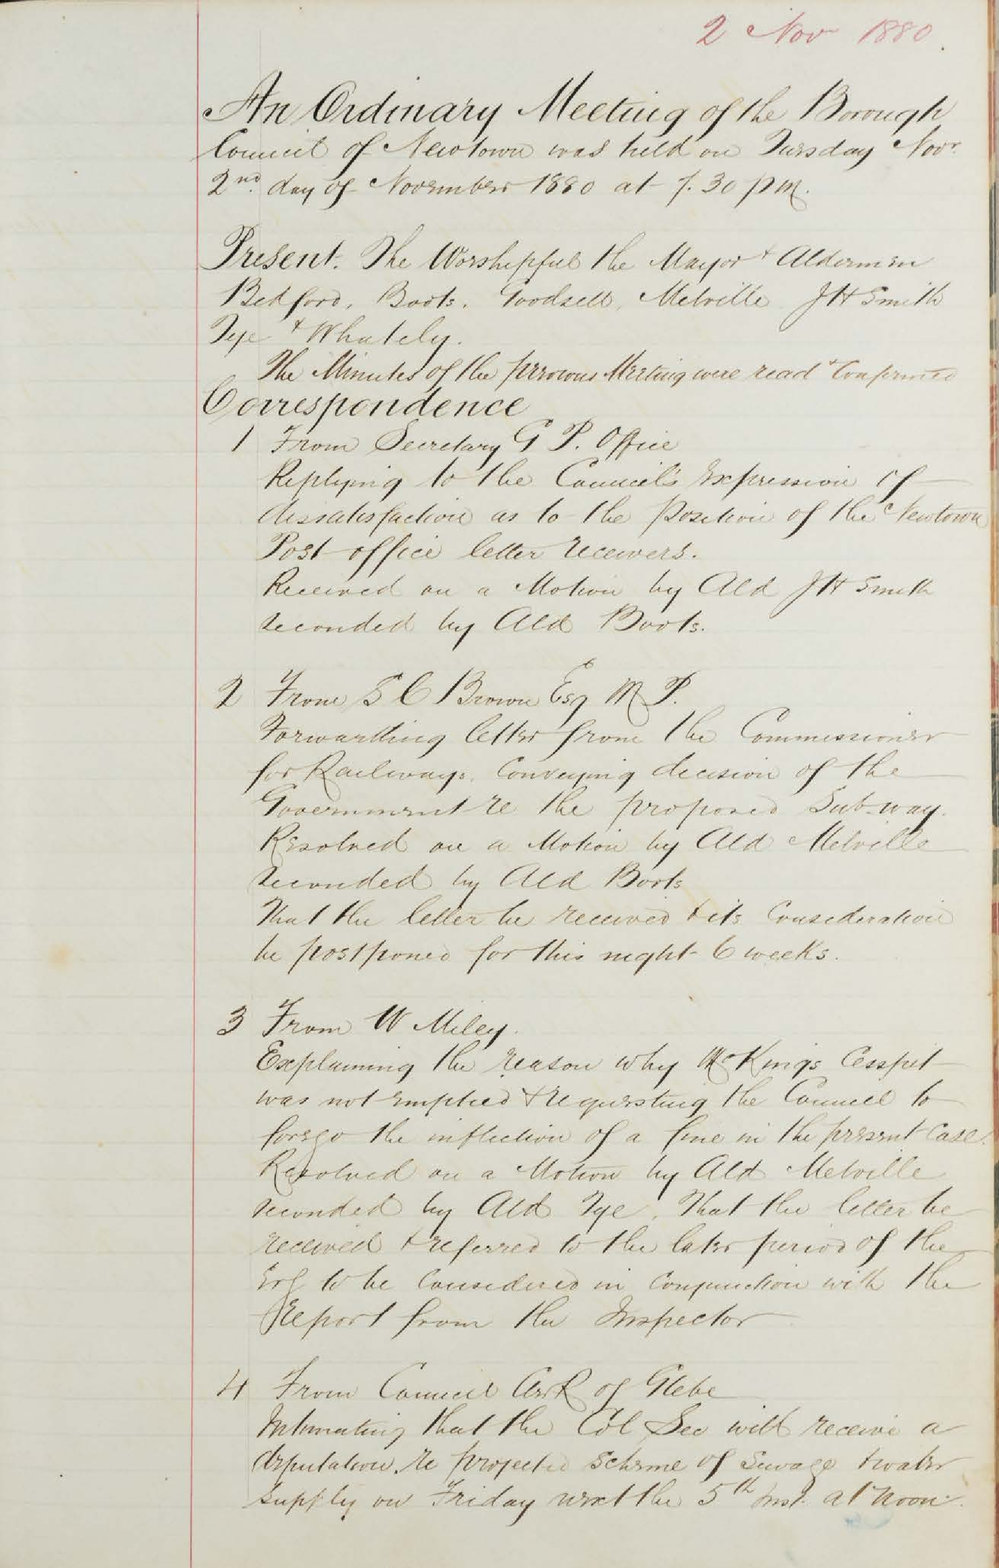 2 Nov 1880.
An Ordinary Meeting of the Borough
Council of Newtown was held on Tuesday Novr
2nd day of November 1880 at 7.30 pm.
Present. The Worshipful the Mayor & Aldermen
Bedford, Boots, Goodsell, Melville J H Smith
Tye & Whately.
The Minutes of the previous Meeting were read & Confirmed
Correspondence
1 From Secretary G P. Office
Replying to the Council's Expression of
dissatisfaction as to the Position of the Newtown
Post office letter receivers.
Received on a Motion by Ald J H Smith
seconded by Ald Boots.
2 From S C Brown Esq M P.
Forwarding letter from the Commissioner
for Railways, Conveying decision of the
Government re the proposed Sub-way.
Resolved on a Motion by Ald Melville
seconded by Ald Boots
That the letter be received & its Consideration
be postponed for this night 6 weeks.
3 From W Miley.
Explaining the reason why Mc Kings Cesspit
was not emptied & requesting the Council to
forego the infliction of a fine in the present Case.
Resolved on a Motion by Ald Melville
seconded by Ald Tye. That the letter be
received & referred to the later period of the
to be Considered in Conjunction with the
Report from the Inspector
4 From Council Clerk of Glebe
Intimating that the Col Sec will receive a
deputation re projected scheme of Sewage & water
supply on Friday next the 5th Inst. at Noon.